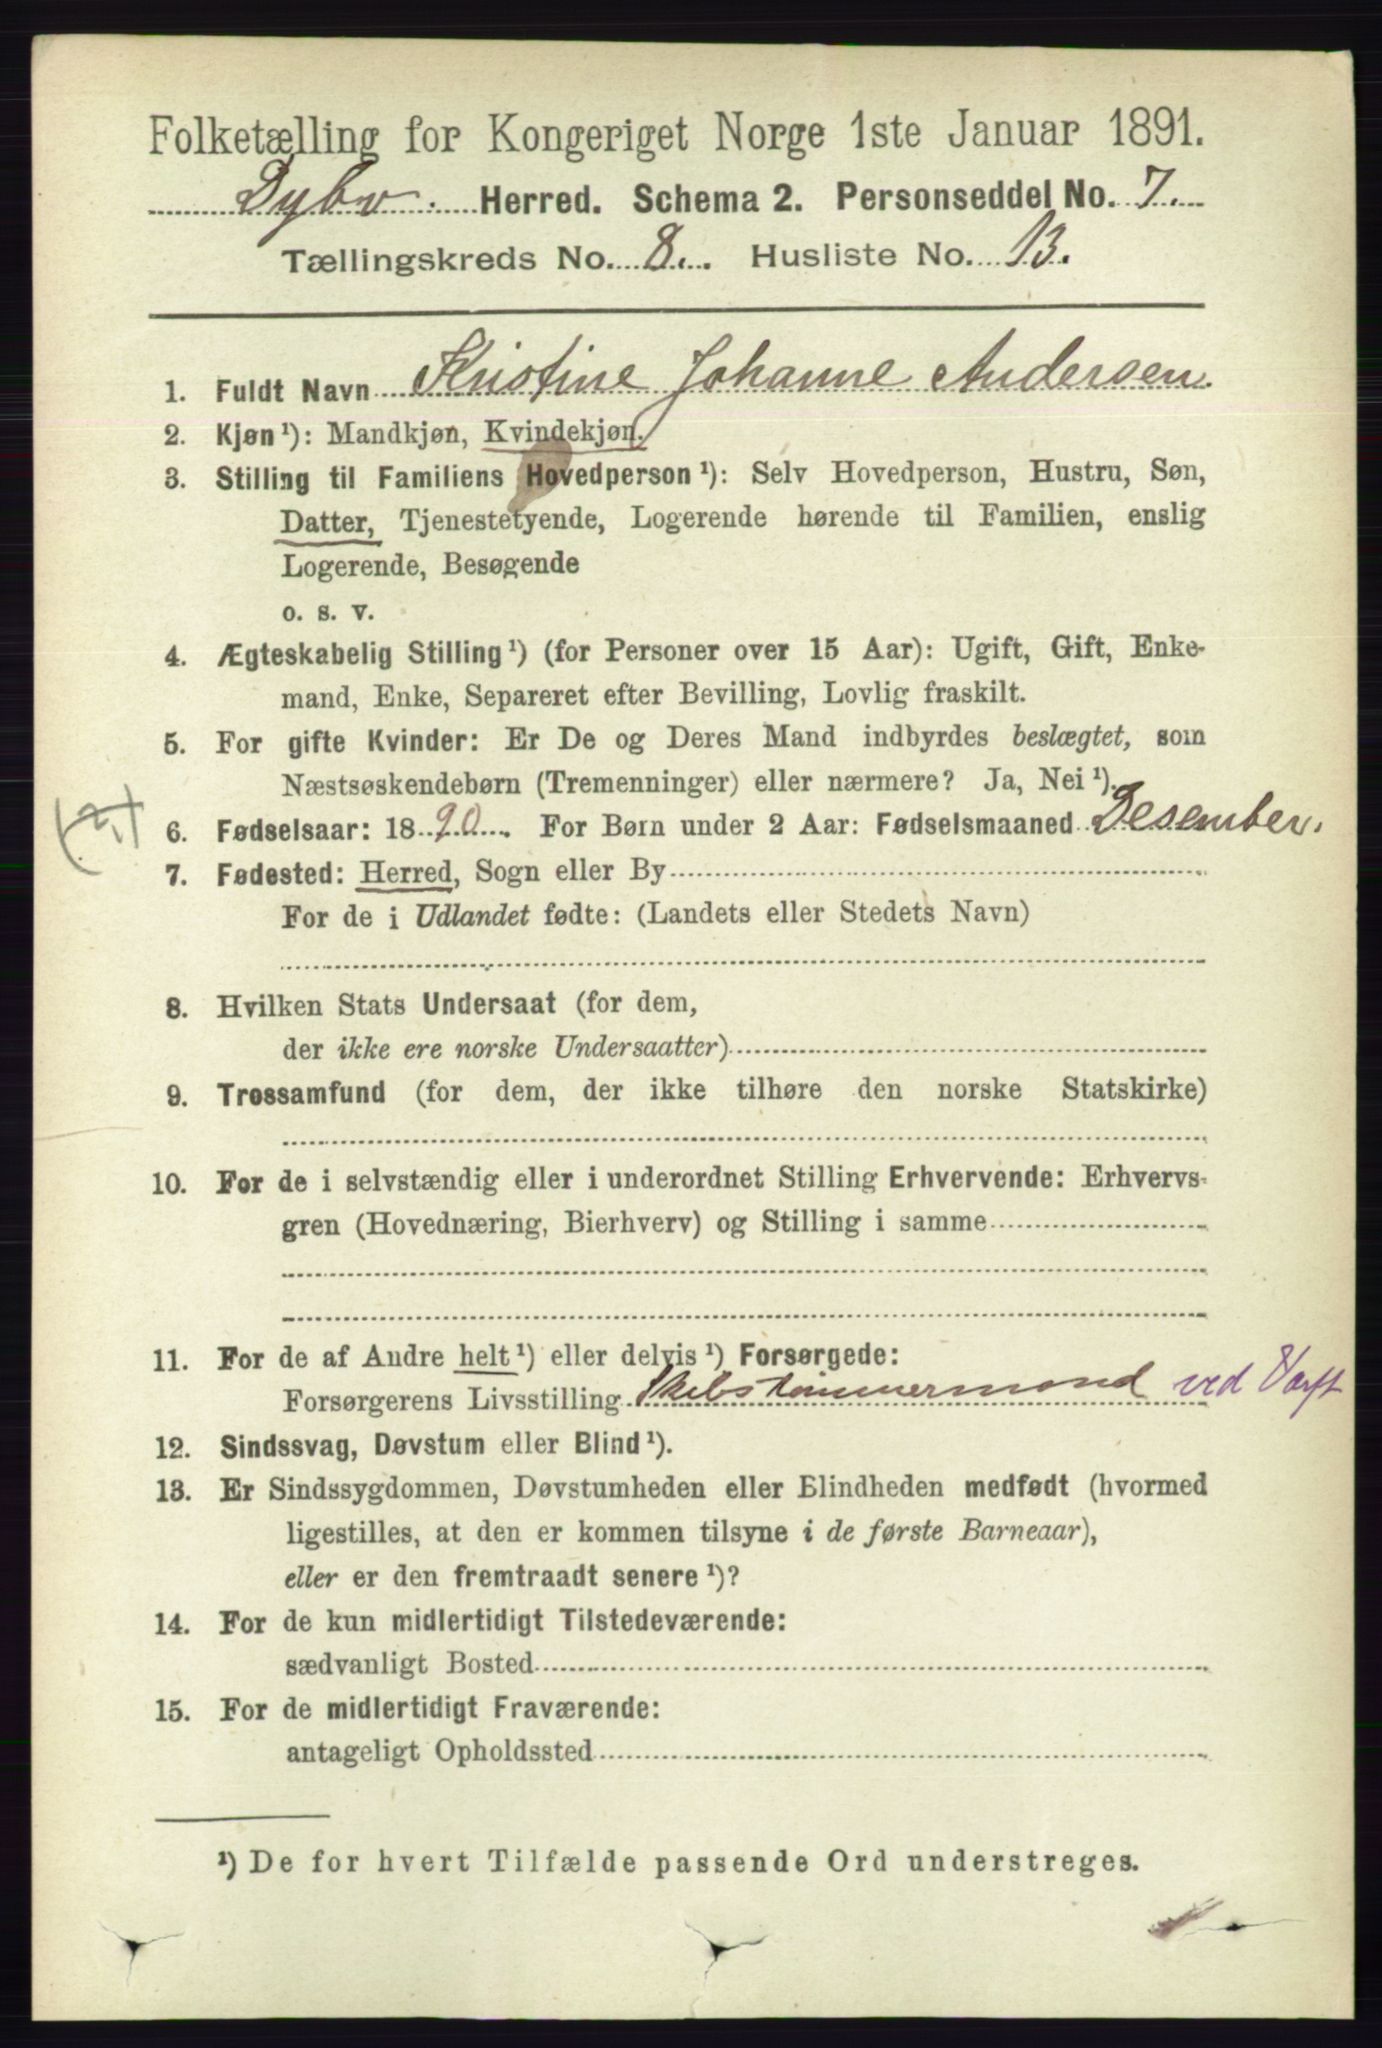 Folketælling for Kongeriget Norge 1ste Januar 1891.
Dybv. Herred. Schema 2. Personseddel No. 7.
Tællingskreds No. 8. Husliste No. 13.
1. Fuldt Navn Kristine Johanne Andersen.
2. Kjøn ¹): Mandkjøn, Kvindekjøn.
3. Stilling til Familiens Hovedperson ¹): Selv Hovedperson, Hustru, Søn,
Datter, Tjenestetyende, Logerende hørende til Familien, enslig
Logerende, Besøgende
o. s. v.
4. Ægteskabelig Stilling ¹) (for Personer over 15 Aar): Ugift, Gift, Enke-
mand, Enke, Separeret efter Bevilling, Lovlig fraskilt.
5. For gifte Kvinder: Er De og Deres Mand indbyrdes beslægtet, som
Næstsøskendebørn (Tremenninger) eller nærmere? Ja, Nei ¹).
6. Fødselsaar: 1890. For Børn under 2 Aar: Fødselsmaaned Desember.
7. Fødested: Herred, Sogn eller By
For de i Udlandet fødte: (Landets eller Stedets Navn)
8. Hvilken Stats Undersaat (for dem,
der ikke ere norske Undersaatter)
9. Trossamfund (for dem, der ikke tilhøre den norske Statskirke)
10. For de i selvstændig eller i underordnet Stilling Erhvervende: Erhvervs-
gren (Hovednæring, Bierhverv) og Stilling i samme
11. For de af Andre helt ¹) eller delvis ¹) Forsørgede:
Forsørgerens Livsstilling Skibstømmermand ved Værft
12. Sindssvag, Døvstum eller Blind ¹).
13. Er Sindssygdommen, Døvstumheden eller Blindheden medfødt (hvormed
ligestilles, at den er kommen tilsyne i de første Barneaar),
eller er den fremtraadt senere ¹)?
14. For de kun midlertidigt Tilstedeværende:
sædvanligt Bosted
15. For de midlertidigt Fraværende:
antageligt Opholdssted
¹) De for hvert Tilfælde passende Ord understreges.